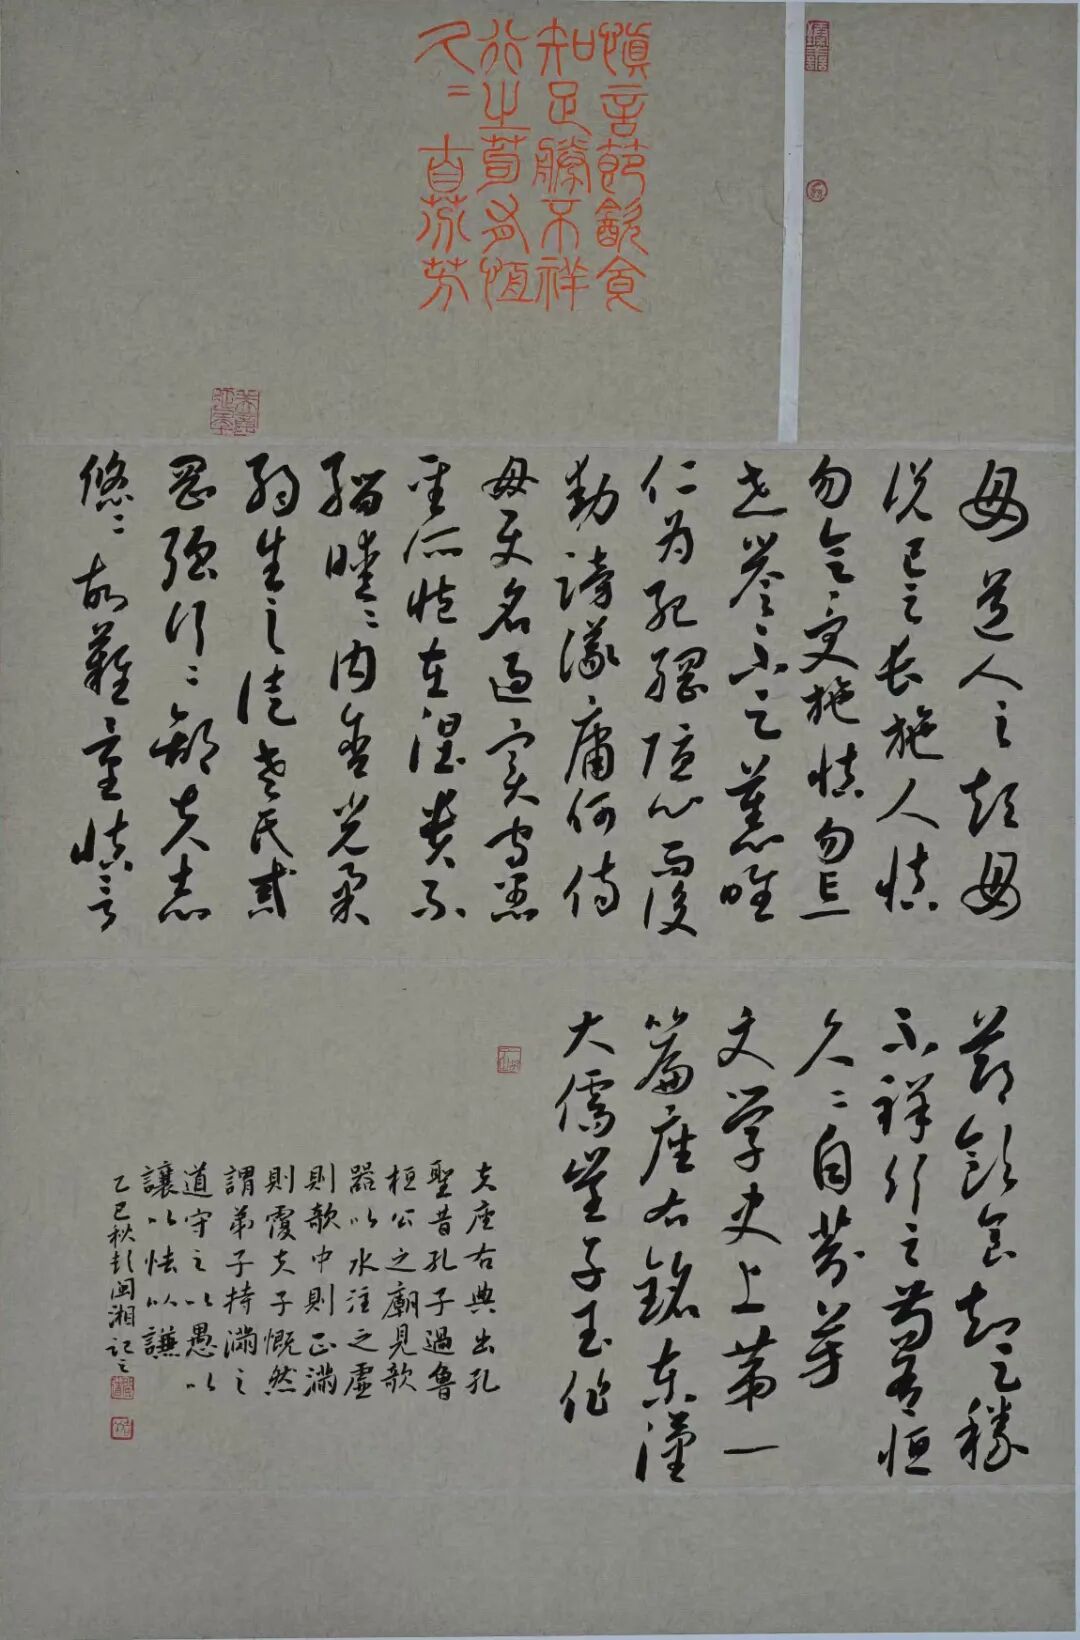 慎言節飲食
知足勝不祥
行之苟有恒
久〻自芬芳
毋道人之短毋
説己之長施人慎
勿念受施慎勿忘
世譽不足慕唯
仁为紀綱隱心而後
動謗議庸何傷
毋使名過實守愚
聖所臧在涅貴不
緇曖〻内含光柔
弱生之徒老氏誡
剛强行〻鄙夫志
悠〻故難量慎言
節飲食知足勝
不祥行之苟有恒
久〻自芬芳
文学史上第一
篇座右銘東漢
大儒崔子玉作
夫座右典出孔
聖昔孔子過魯
桓公之廟見欹
器以水注之虛
則欹中則正滿
則覆夫子慨然
謂弟子持滿之
道守之以愚以
讓以怯以謙
乙巳秋彭闽湘記之